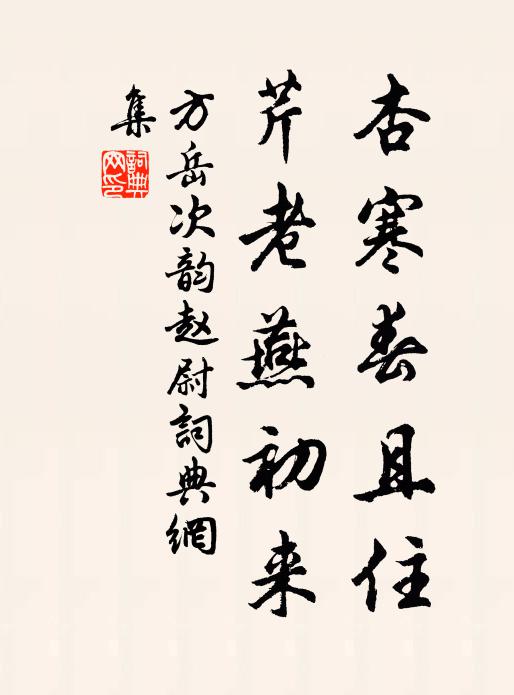 杏寒春且住
芹老燕初来
方岳次韵赵尉詞典網
集
詞典網印